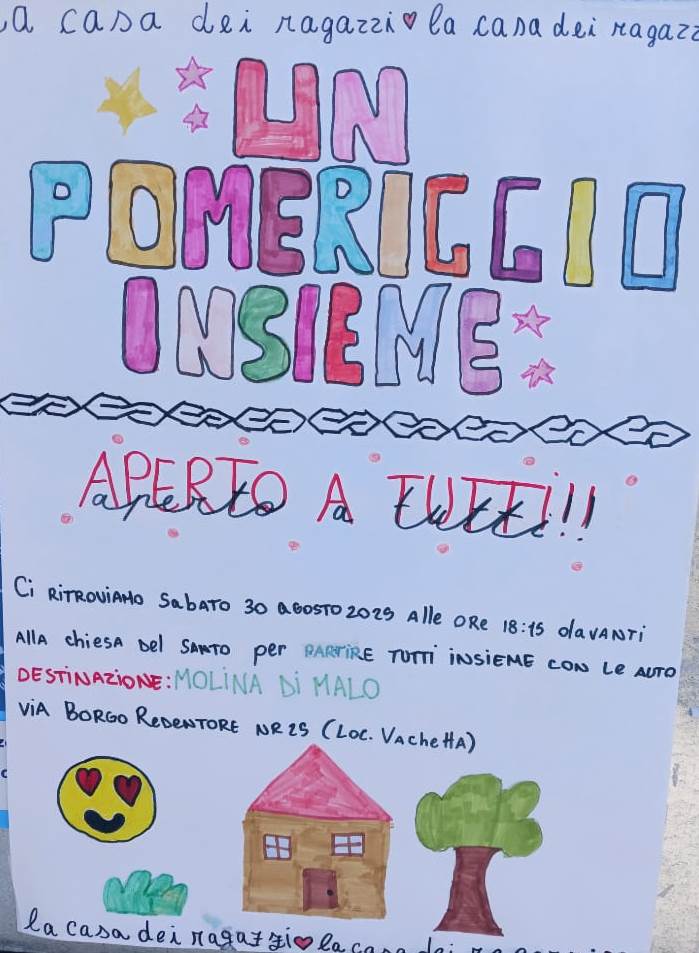 la casa dei ragazzi♥la casa dei ragazz
UN
POMERIGGIO
INSIEME
APERTO A TUTTI!!
aperto a tutti!!
Ci RiTROViAMO SabATO 30 AGOSTO 2025 Alle ORe 18:15 davANTi
AllA chiesA Del SANTO per PARTiRE TUTTi iNSiEME CON Le AUTO
DESTiNAZiONE: MOLiNA Di MALO
ViA BORGO REDENTORE NR 25 (Loc. VAcheTTA)
la casa dei ragazzi♥la casa dei ragazzi